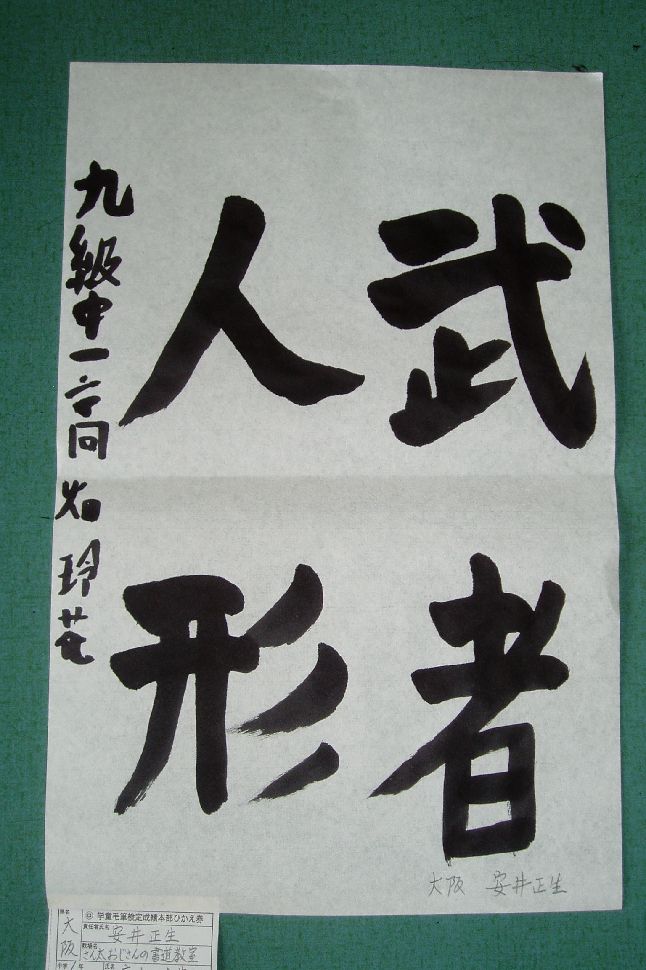 武者
人形
九級中一
玲花
大阪 安井正生
県名
大阪
学童毛筆検定成績本部ひかえ券
責任者氏名 安井正生
教場名
さん太おじさんの書道教室
氏名